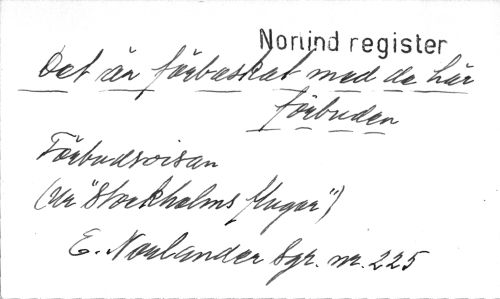 Norlind register
Det är förbaskat med de här
förbuden
Förbudsvisan
(Ur "Stockholms flugor")
E. Norlander Sgr. nr. 225